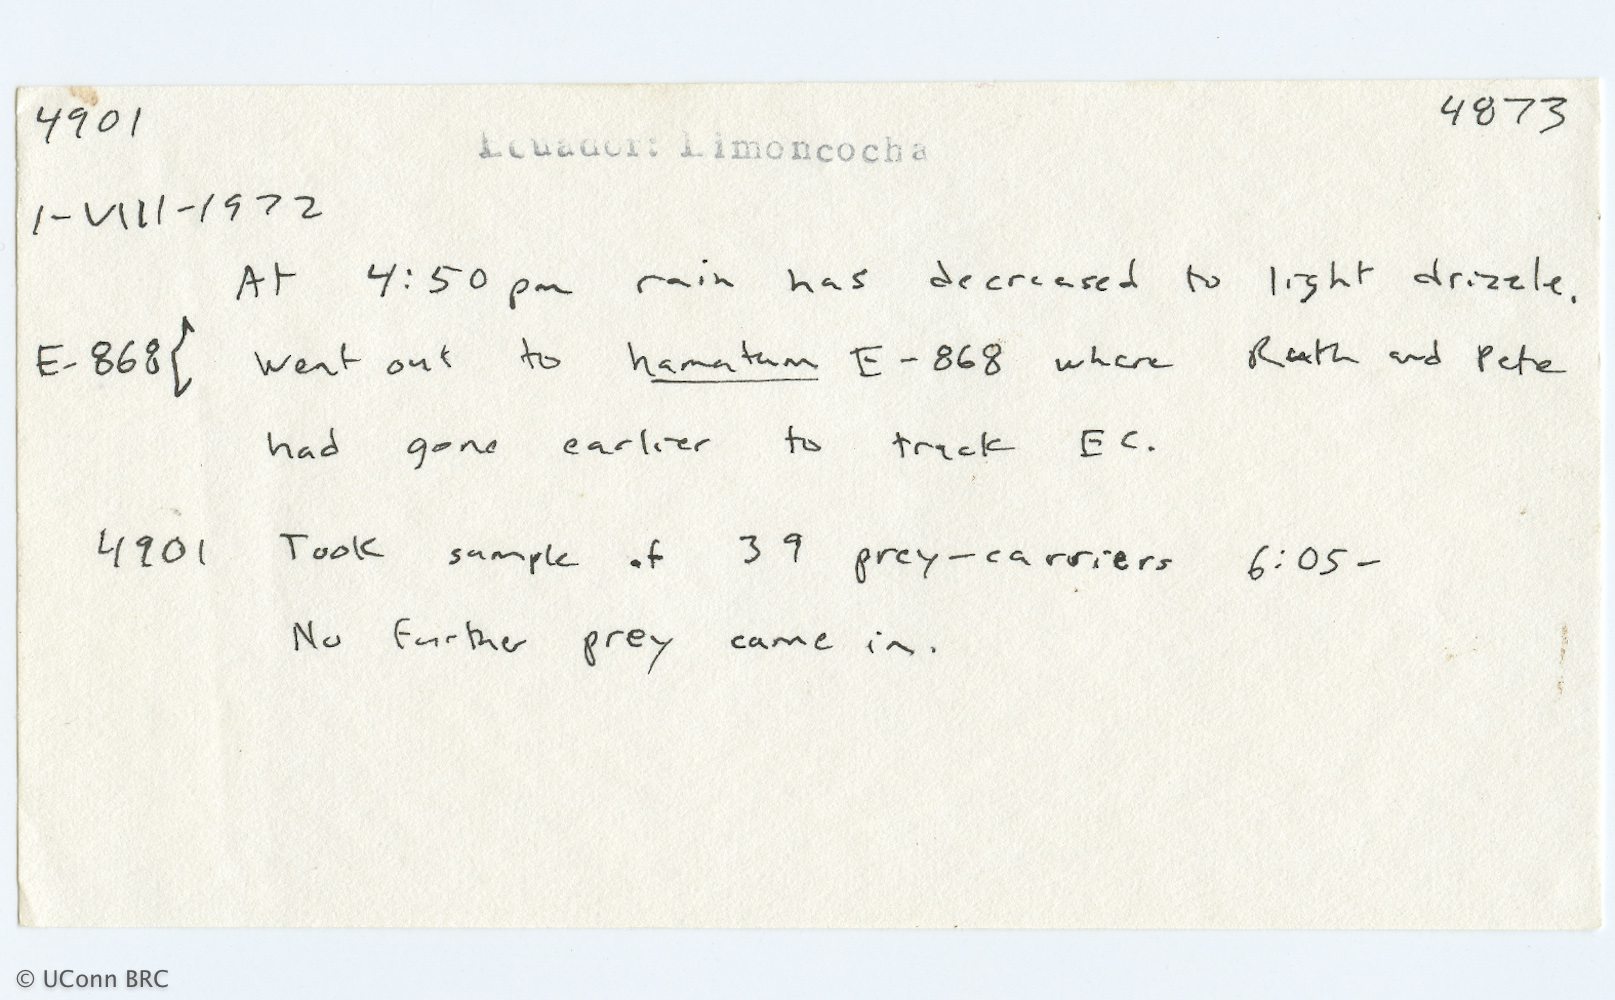 4901 4873
Ecuador: Limoncocha
1-VIII-1972
At 4:50 pm rain has decreased to light drizzle.
E-868{ Went out to hamatum E-868 where Ruth and Pete
had gone earlier to track EC.
4901 Took sample of 39 prey-carriers 6:05-
No further prey came in.
© UConn BRC